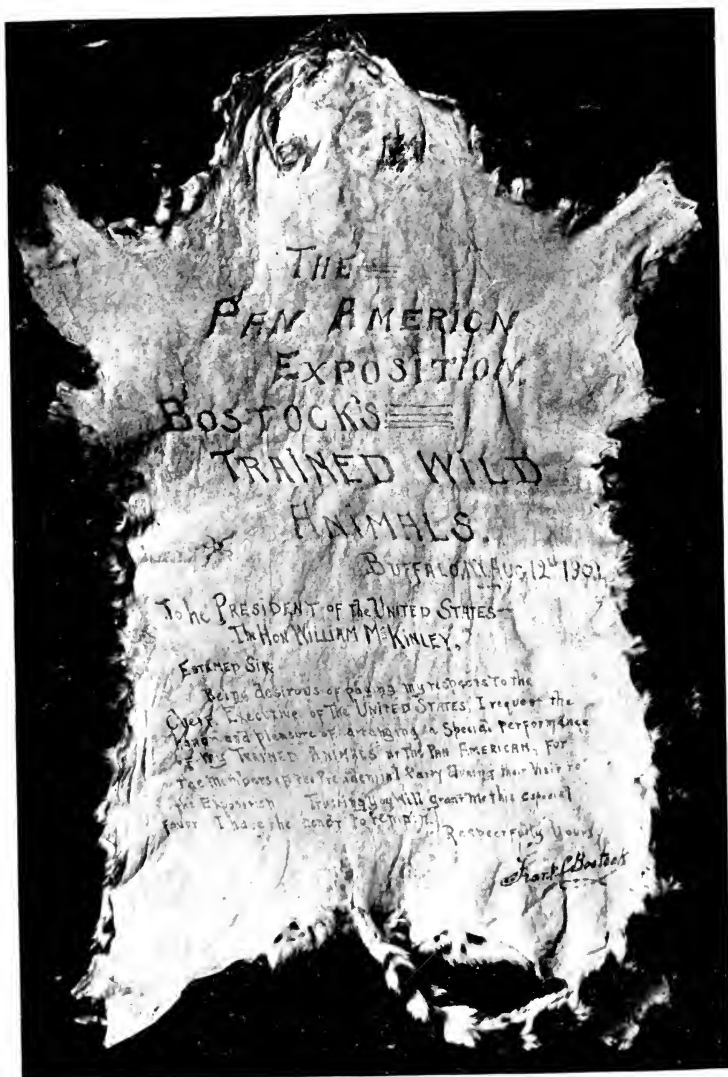 THE
PAN AMERICAN
EXPOSITION.
BOSTOCK'S
TRAINED WILD
ANIMALS.
BUFFALO, N.Y. AUG. 12th 1901
To the PRESIDENT OF the UNITED STATES—
The HON WILLIAM McKINLEY,
ESTEEMED SIR:
Being desirous of paying my respects to the
CHIEF EXECUTIVE OF THE UNITED STATES, I request the
honor and pleasure of arranging a Special Performance
of TRAINED ANIMALS at THE PAN AMERICAN, for
the Members of the Presidential Party During their Visit to
the Exposition Trusting you Will grant Me this especial
favor I have the honor to remain
Respectfully Yours
Frank C Bostock